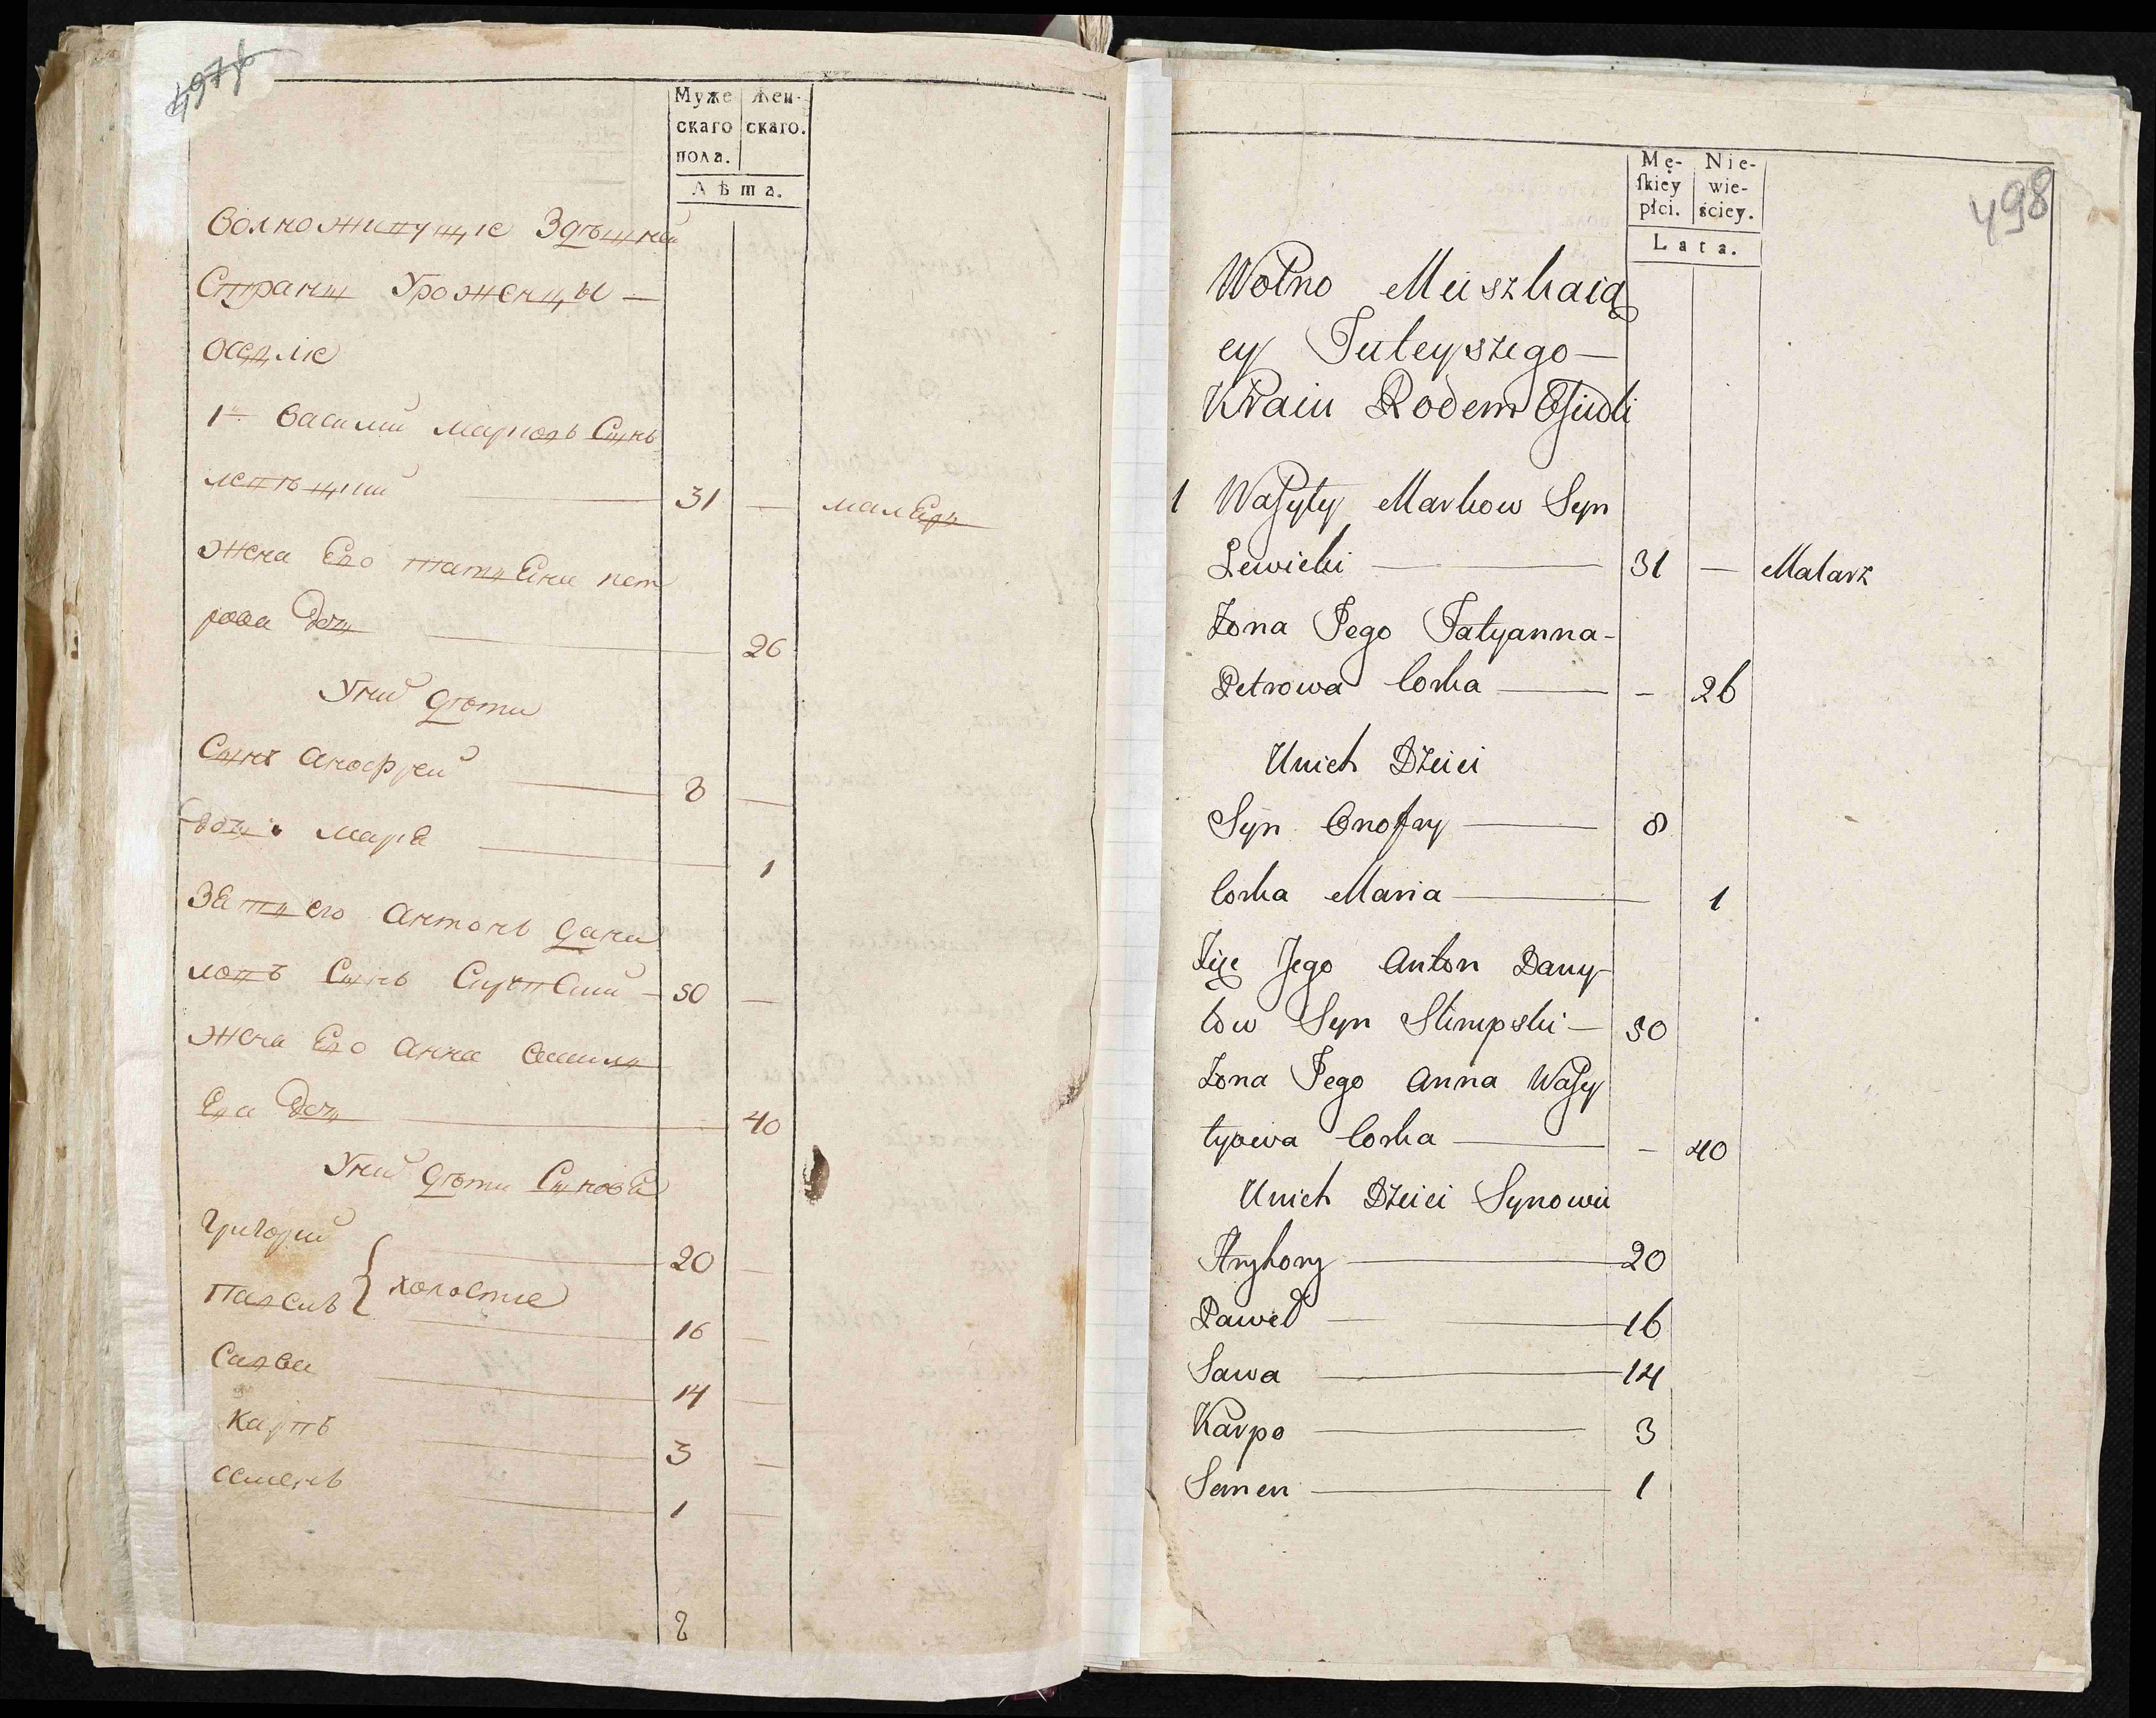 497б
Муже Жен-
скаго скаго.
пола.
Лѣта.
Волноживущие Здѣшней
Страны Уроженцы —
оседлие
1й Василий Марковъ Сынъ
31 — маляръ
жена Его татъяна пет
рова Дочь 26
Уних дѣти
Сынъ Анофрей 8 —
дочь Марія 1
Зять его Антонъ дани
ловъ Сынъ 50 —
жена Его Анна васили
ева Дочь 40
Уних дѣти Сыновя
Григорий 20 —
Павелъ } холостие 16 —
Савва 14 —
Карпъ 3 —
семенъ 1 —
8
498
Mę- Nie-
skiey wie-
płci. ściey.
Lata.
Wolno Mieszkaią
cy Tuteyszego —
Kraiu Rodem Osiedli
1 Wasyly Markow Syn
Lewicki — 31 — Malarz
Żona Jego Tatyanna -
Petrowa Corka — - 26
Unich Dzieci
Syn Onofry — 8
Corka Maria — 1
Zięc Jego Anton Dany-
low Syn Slimpski — 50
Żona Jego Anna Wasy
lyowa Corka — - 40
Unich Dzieci Synowie
Hryhory — 20
Paweł — 16
Sawa — 14
Karpo — 3
Semen — 1